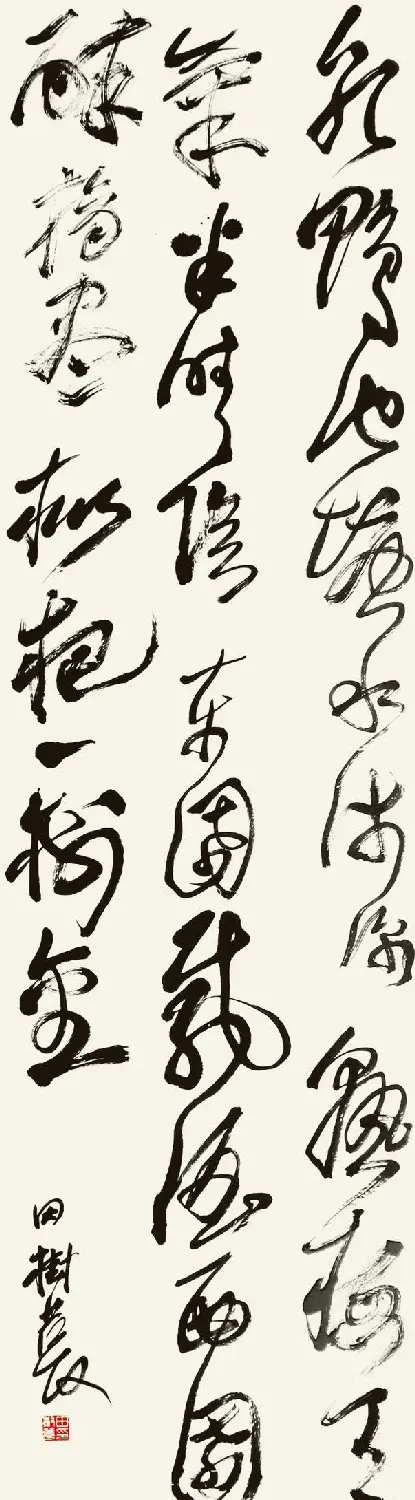 乳鴨池塘水淺深熟梅天
氣半晴陰東園載酒西園
醉摘盡枇杷一樹金
田樹萇